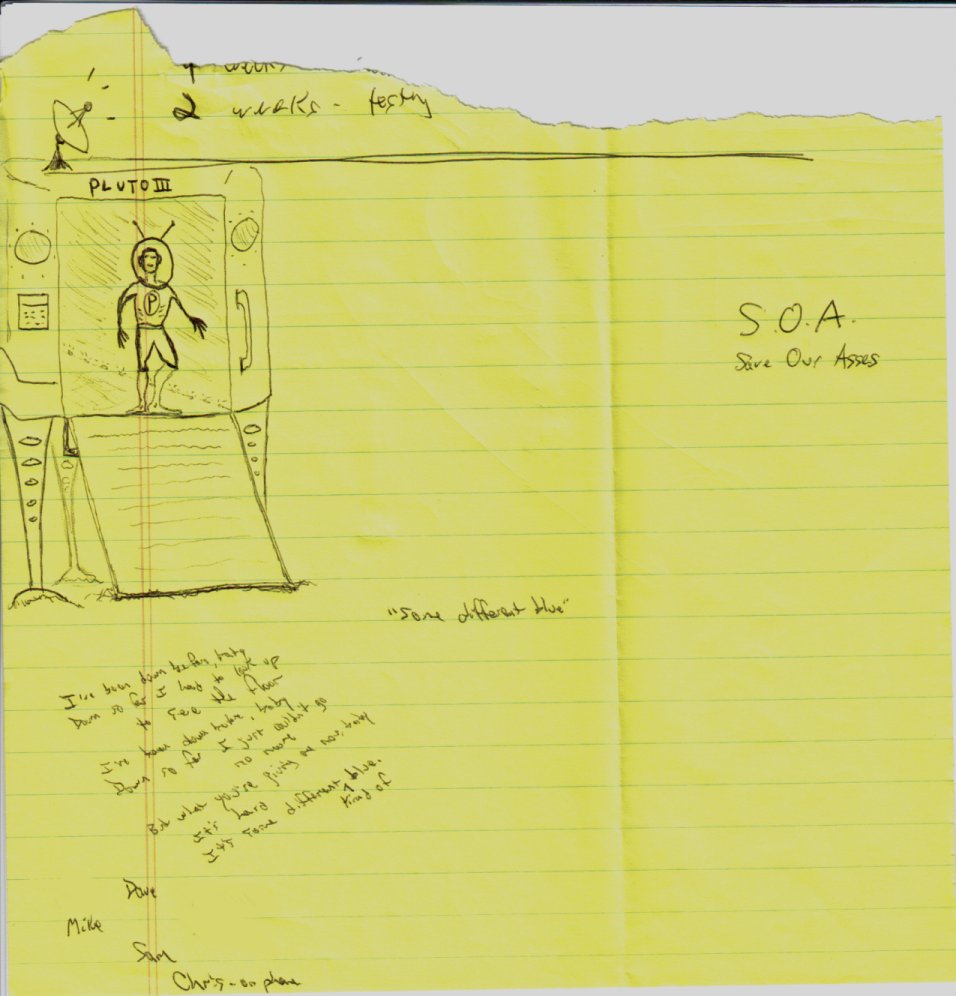 weeks
2 weeks - testing
PLUTO III
P
S.O.A.
Save Our Asses
"Some different blue"
I've been down before, baby
Down so far I had to look up
to see the floor
I've been down before, baby
Down so far I just couldn't go
no more
But what you're giving me now, baby
It's hard
It's some different ^ blue.
kind of
Dave
Mike
Sam
Chris - on phone